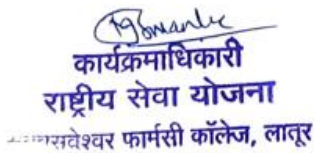 कार्यक्रमाधिकारी
राष्ट्रीय सेवा योजना
फार्मसी कॉलेज, लातूर